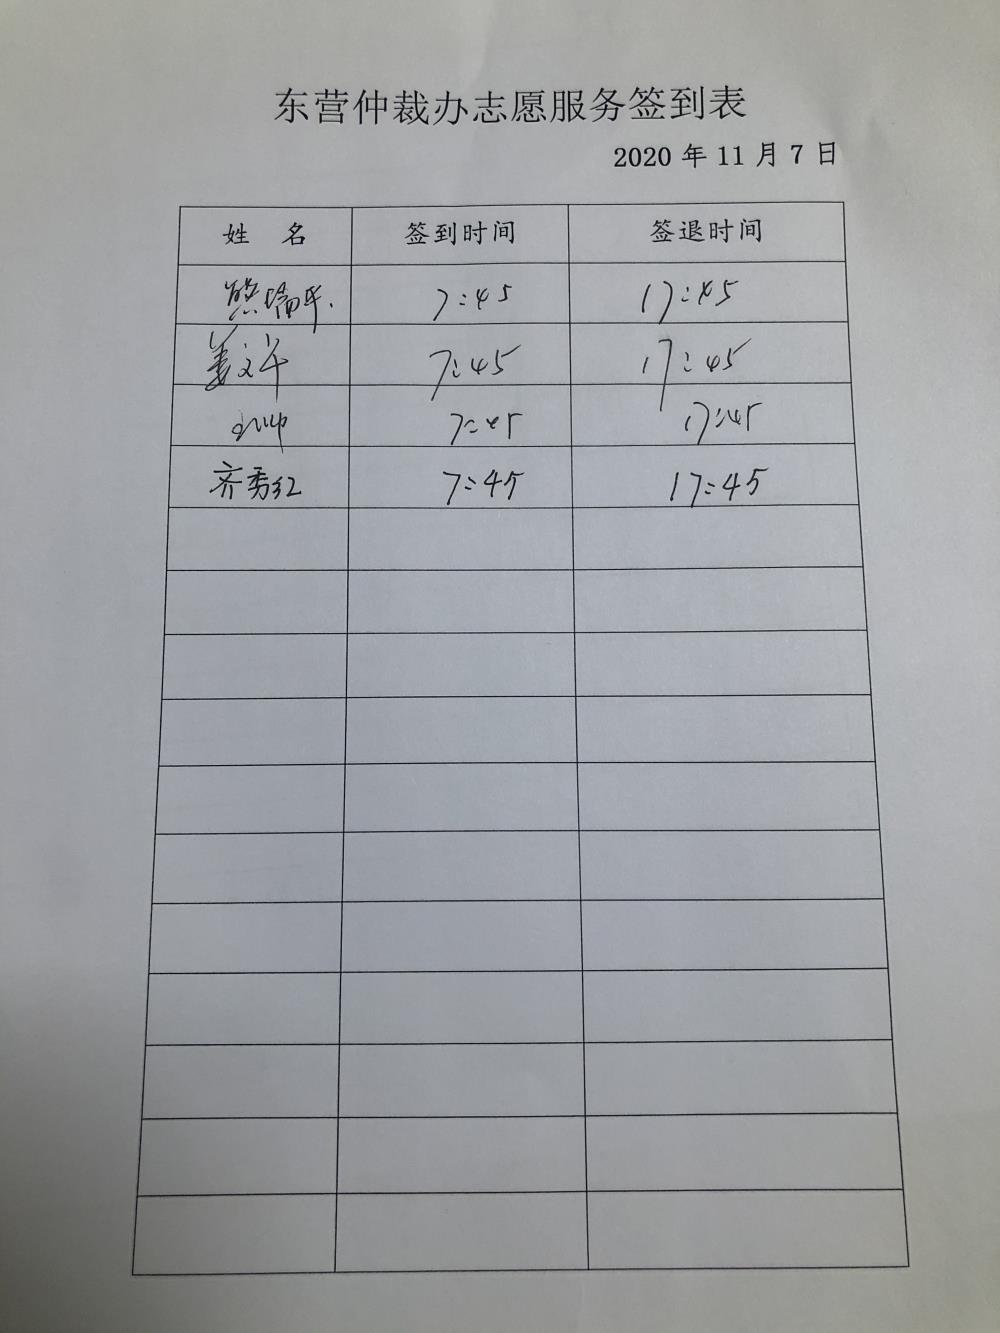 东营仲裁办志愿服务签到表
2020 年 11 月 7 日
姓 名 签到时间 签退时间
7:45 17:45
姜文军 7:45 17:45
7:45 17:45
齐秀红 7:45 17:45